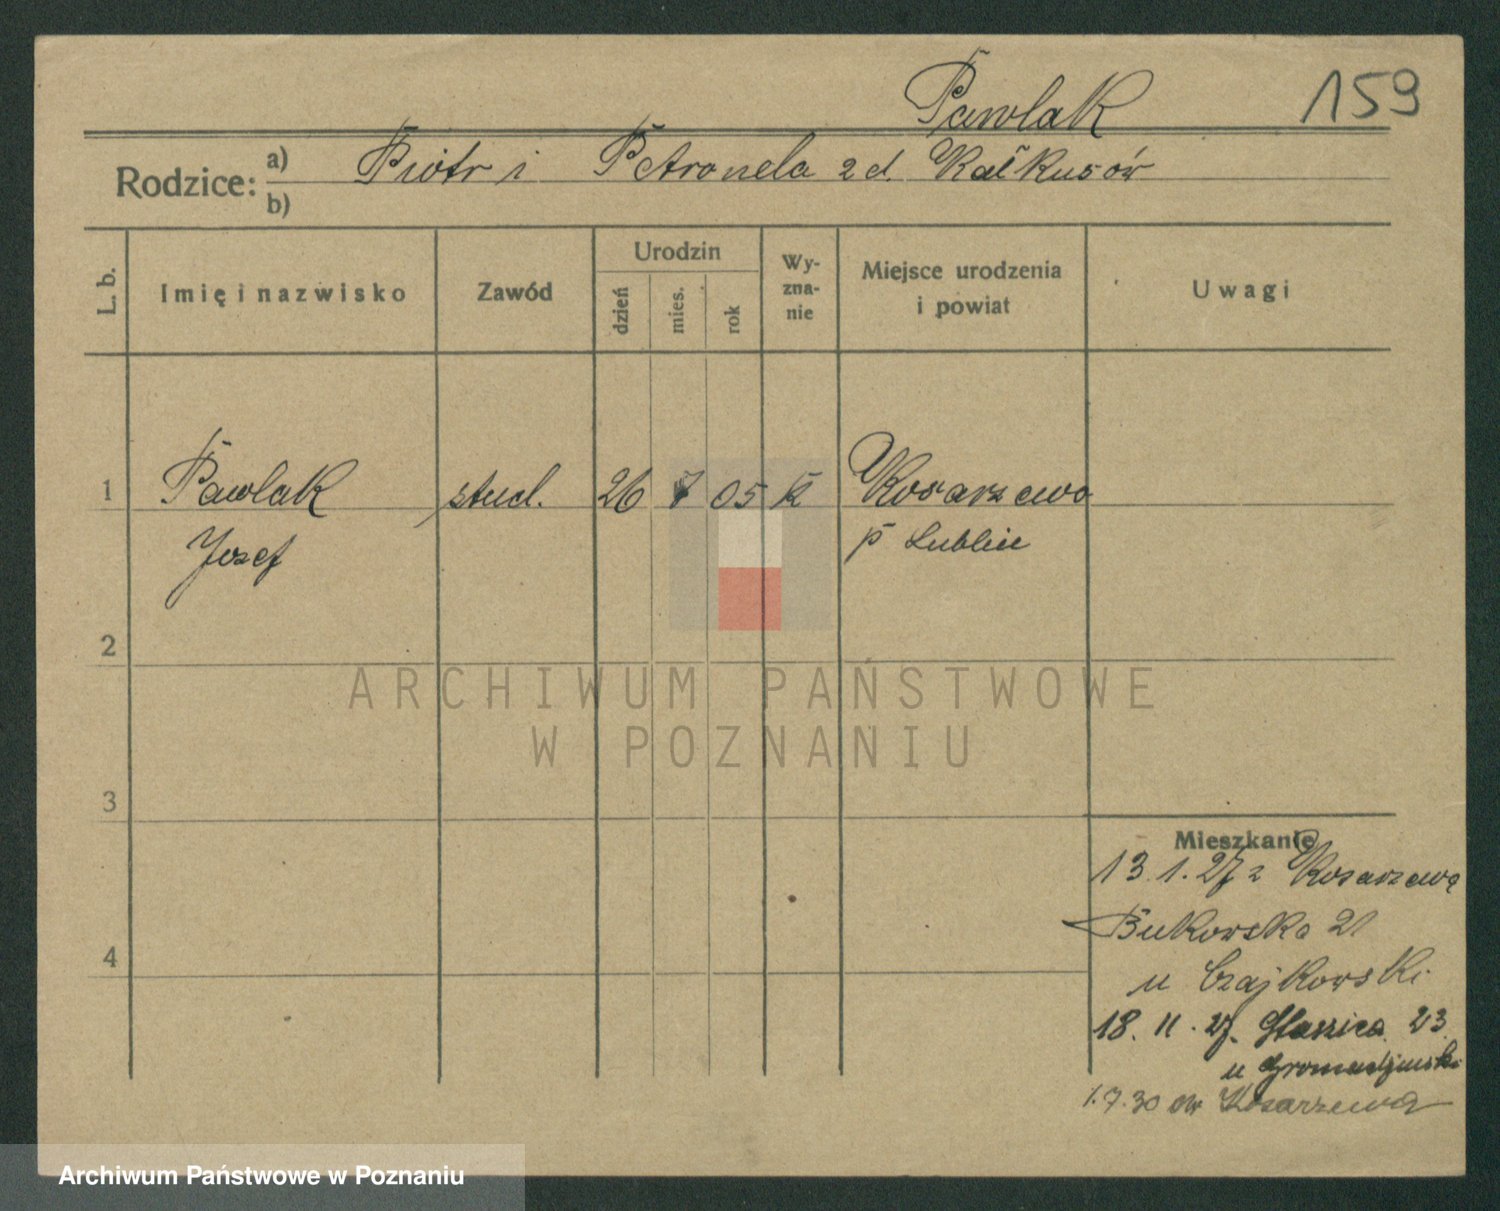 Pawlak
159
Rodzice:
a) Piotr i Petronela z d.
b)
L. b.
Imię i nazwisko
Zawód
Urodzin
dzień
mies.
rok
Wy-
zna-
nie
Miejsce urodzenia
i powiat
Uwagi
1 Pawlak stud. 26 7 05 k Kosarzewo
Jozef p Lublin
2
3
4
Mieszkanie
13.1.27 z Kosarzewa
Bukowska 21
u Czajkowski
18. 11. 27. Staszica 23
u Gromadziński
1.7.30 Kosarzewa
ARCHIWUM PAŃSTWOWE
W POZNANIU
Archiwum Państwowe w Poznaniu